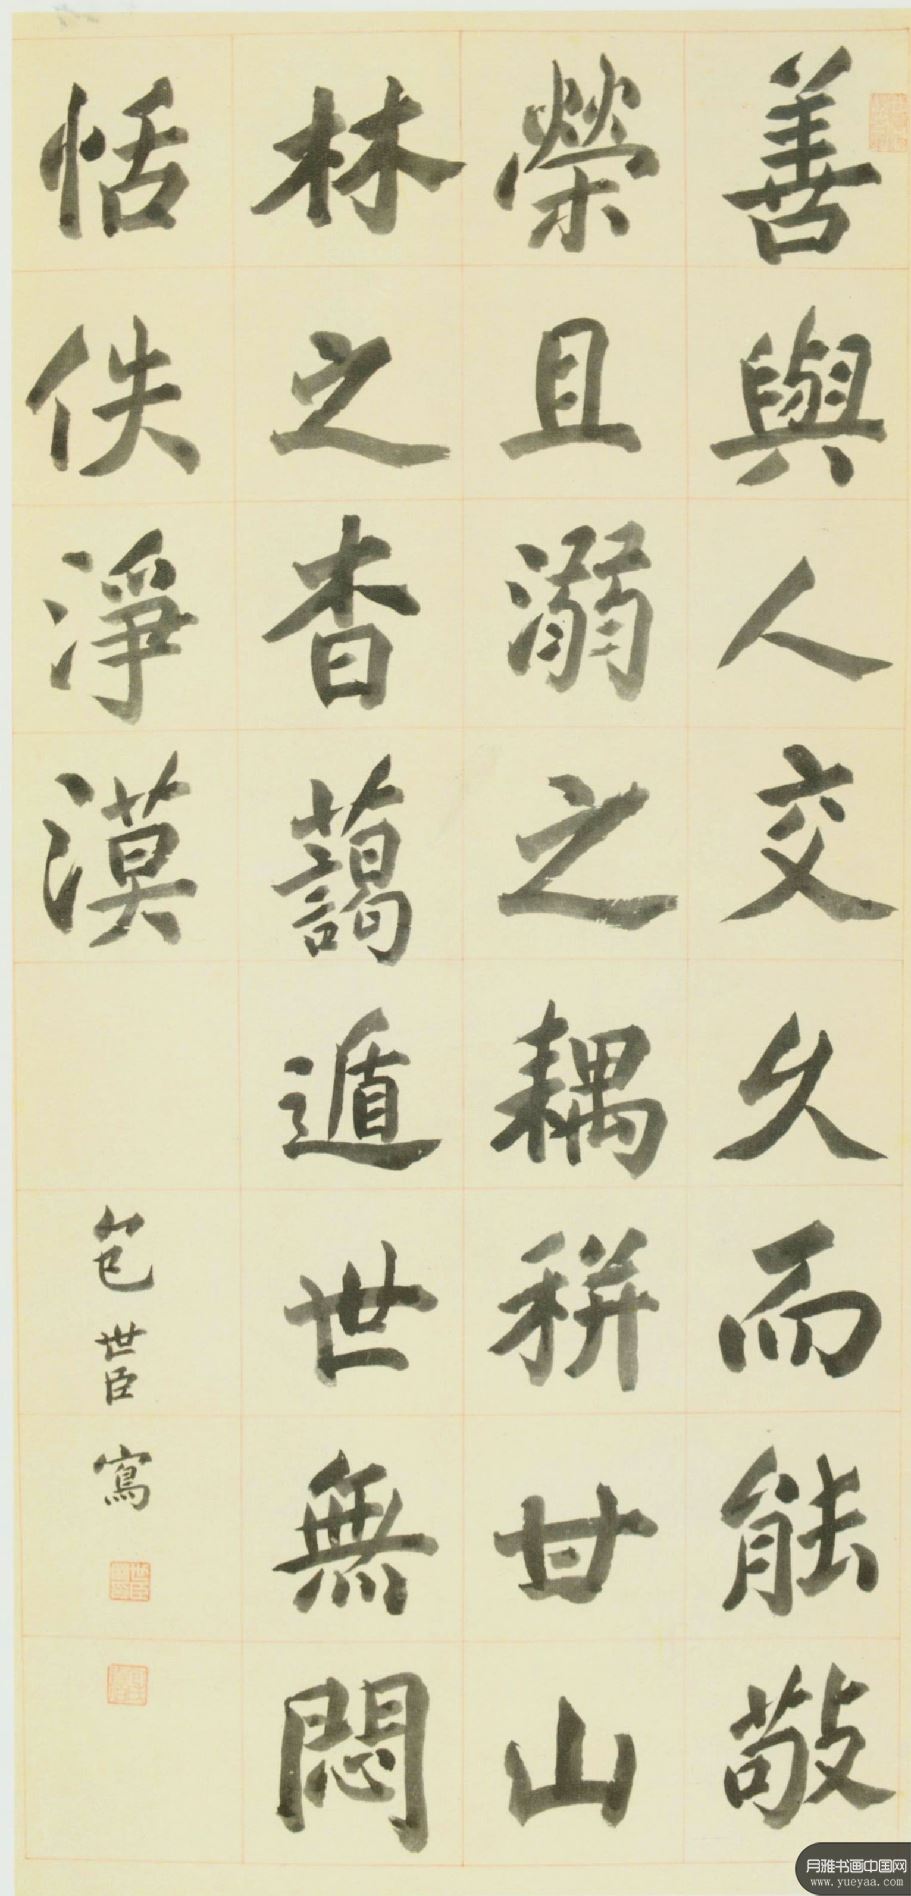 善與人交久而能敬
榮且溺之耦稱甘山
林之杳藹遁世無悶
恬佚淨漠
包世臣寫
月雅书画中国网
www.yueyaa.com